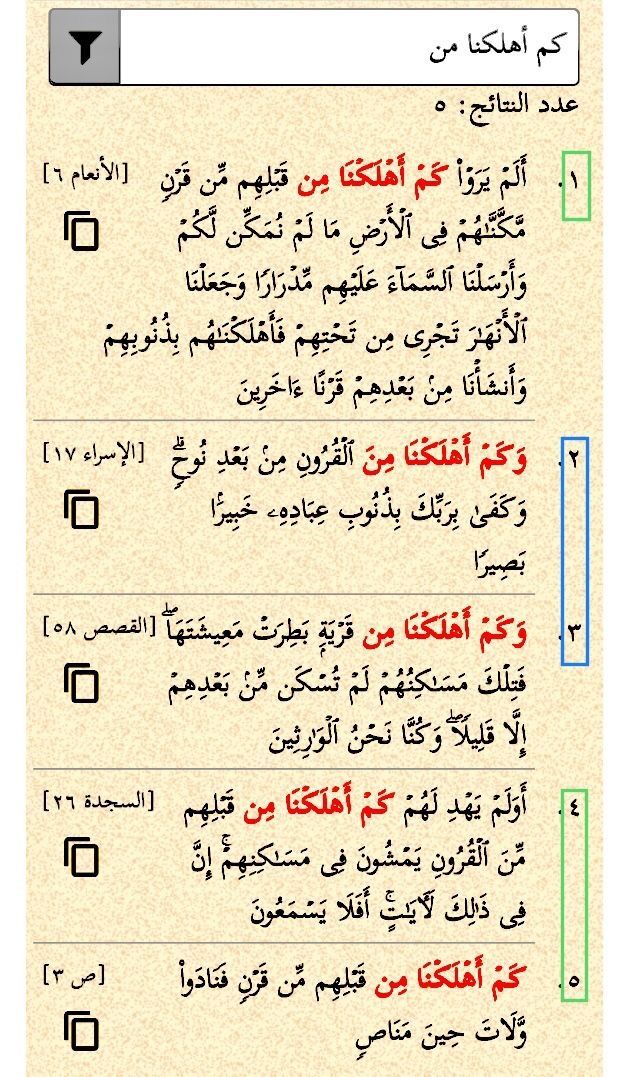 كم أهلكنا من
عدد النتائج: ٥
١. أَلَمۡ يَرَوۡاْ كَمۡ أَهۡلَكۡنَا مِن قَبۡلِهِم مِّن قَرۡنٖ [الأنعام ٦]
مَّكَّنَّٰهُمۡ فِي ٱلۡأَرۡضِ مَا لَمۡ نُمَكِّن لَّكُمۡ
وَأَرۡسَلۡنَا ٱلسَّمَآءَ عَلَيۡهِم مِّدۡرَارٗا وَجَعَلۡنَا
ٱلۡأَنۡهَٰرَ تَجۡرِي مِن تَحۡتِهِمۡ فَأَهۡلَكۡنَٰهُم بِذُنُوبِهِمۡ
وَأَنشَأۡنَا مِنۢ بَعۡدِهِمۡ قَرۡنًا ءَاخَرِينَ
٢. وَكَمۡ أَهۡلَكۡنَا مِنَ ٱلۡقُرُونِ مِنۢ بَعۡدِ نُوحٖۗ [الإسراء ١٧]
وَكَفَىٰ بِرَبِّكَ بِذُنُوبِ عِبَادِهِۦ خَبِيرَۢا
بَصِيرٗا
٣. وَكَمۡ أَهۡلَكۡنَا مِن قَرۡيَةِۭ بَطِرَتۡ مَعِيشَتَهَاۖ [القصص ٥٨]
فَتِلۡكَ مَسَٰكِنُهُمۡ لَمۡ تُسۡكَن مِّنۢ بَعۡدِهِمۡ
إِلَّا قَلِيلٗاۖ وَكُنَّا نَحۡنُ ٱلۡوَٰرِثِينَ
٤. أَوَلَمۡ يَهۡدِ لَهُمۡ كَمۡ أَهۡلَكۡنَا مِن قَبۡلِهِم [السجدة ٢٦]
مِّنَ ٱلۡقُرُونِ يَمۡشُونَ فِي مَسَٰكِنِهِمۡۚ إِنَّ
فِي ذَٰلِكَ لَأٓيَٰتٍۚ أَفَلَا يَسۡمَعُونَ
٥. كَمۡ أَهۡلَكۡنَا مِن قَبۡلِهِم مِّن قَرۡنٖ فَنَادَواْ [ص ٣]
وَّلَاتَ حِينَ مَنَاصٖ